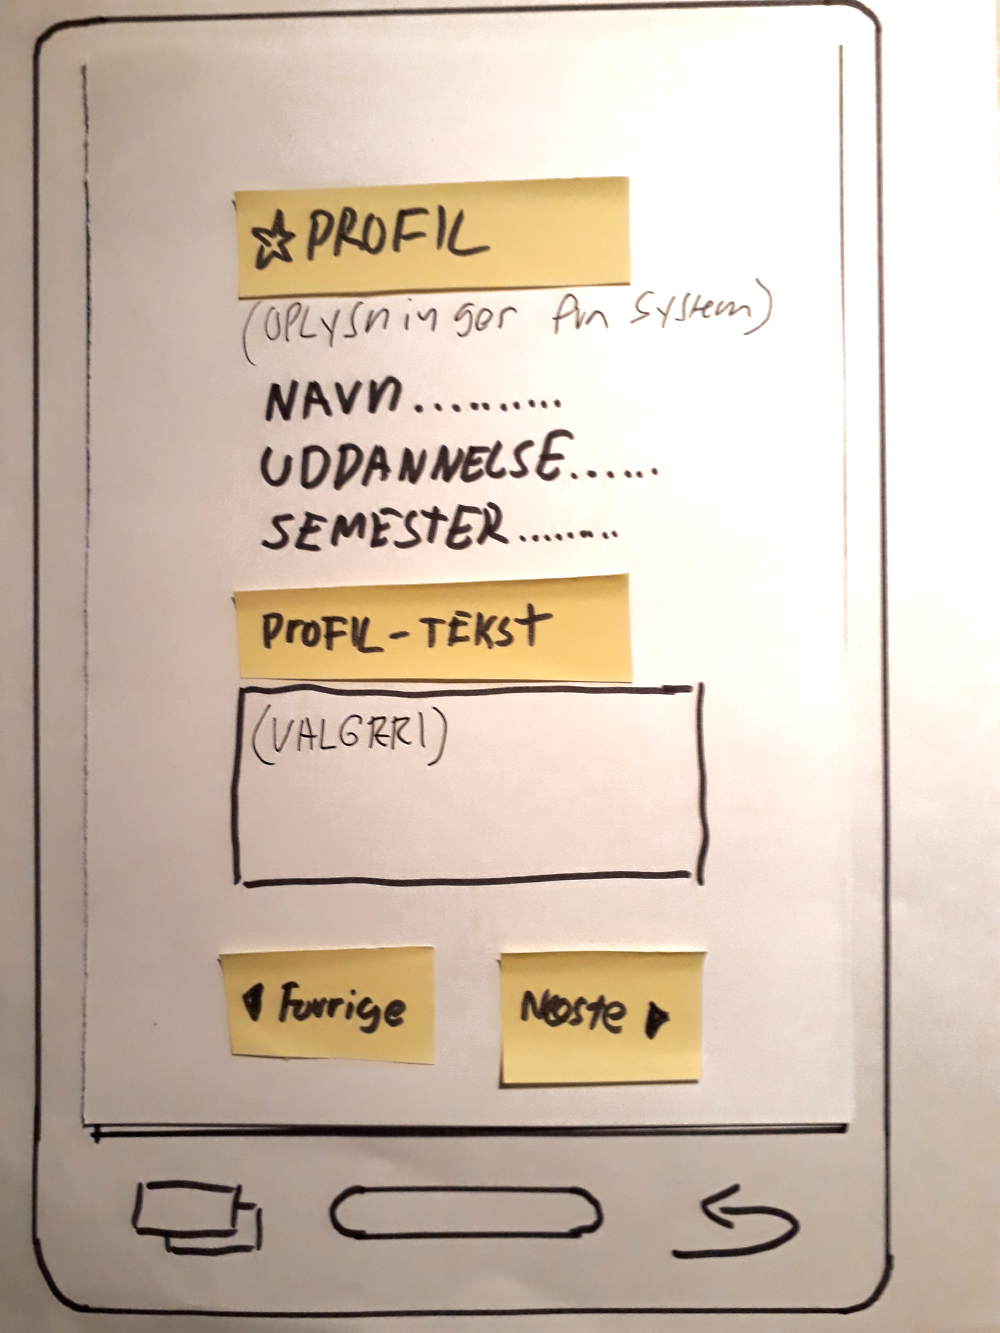 ☆ PROFIL
(OPLYSNINGER fra System)
NAVN..........
UDDANNELSE......
SEMESTER........
PROFIL-TEKST
(VALGFRI)
◀ Forrige
Næste ▶